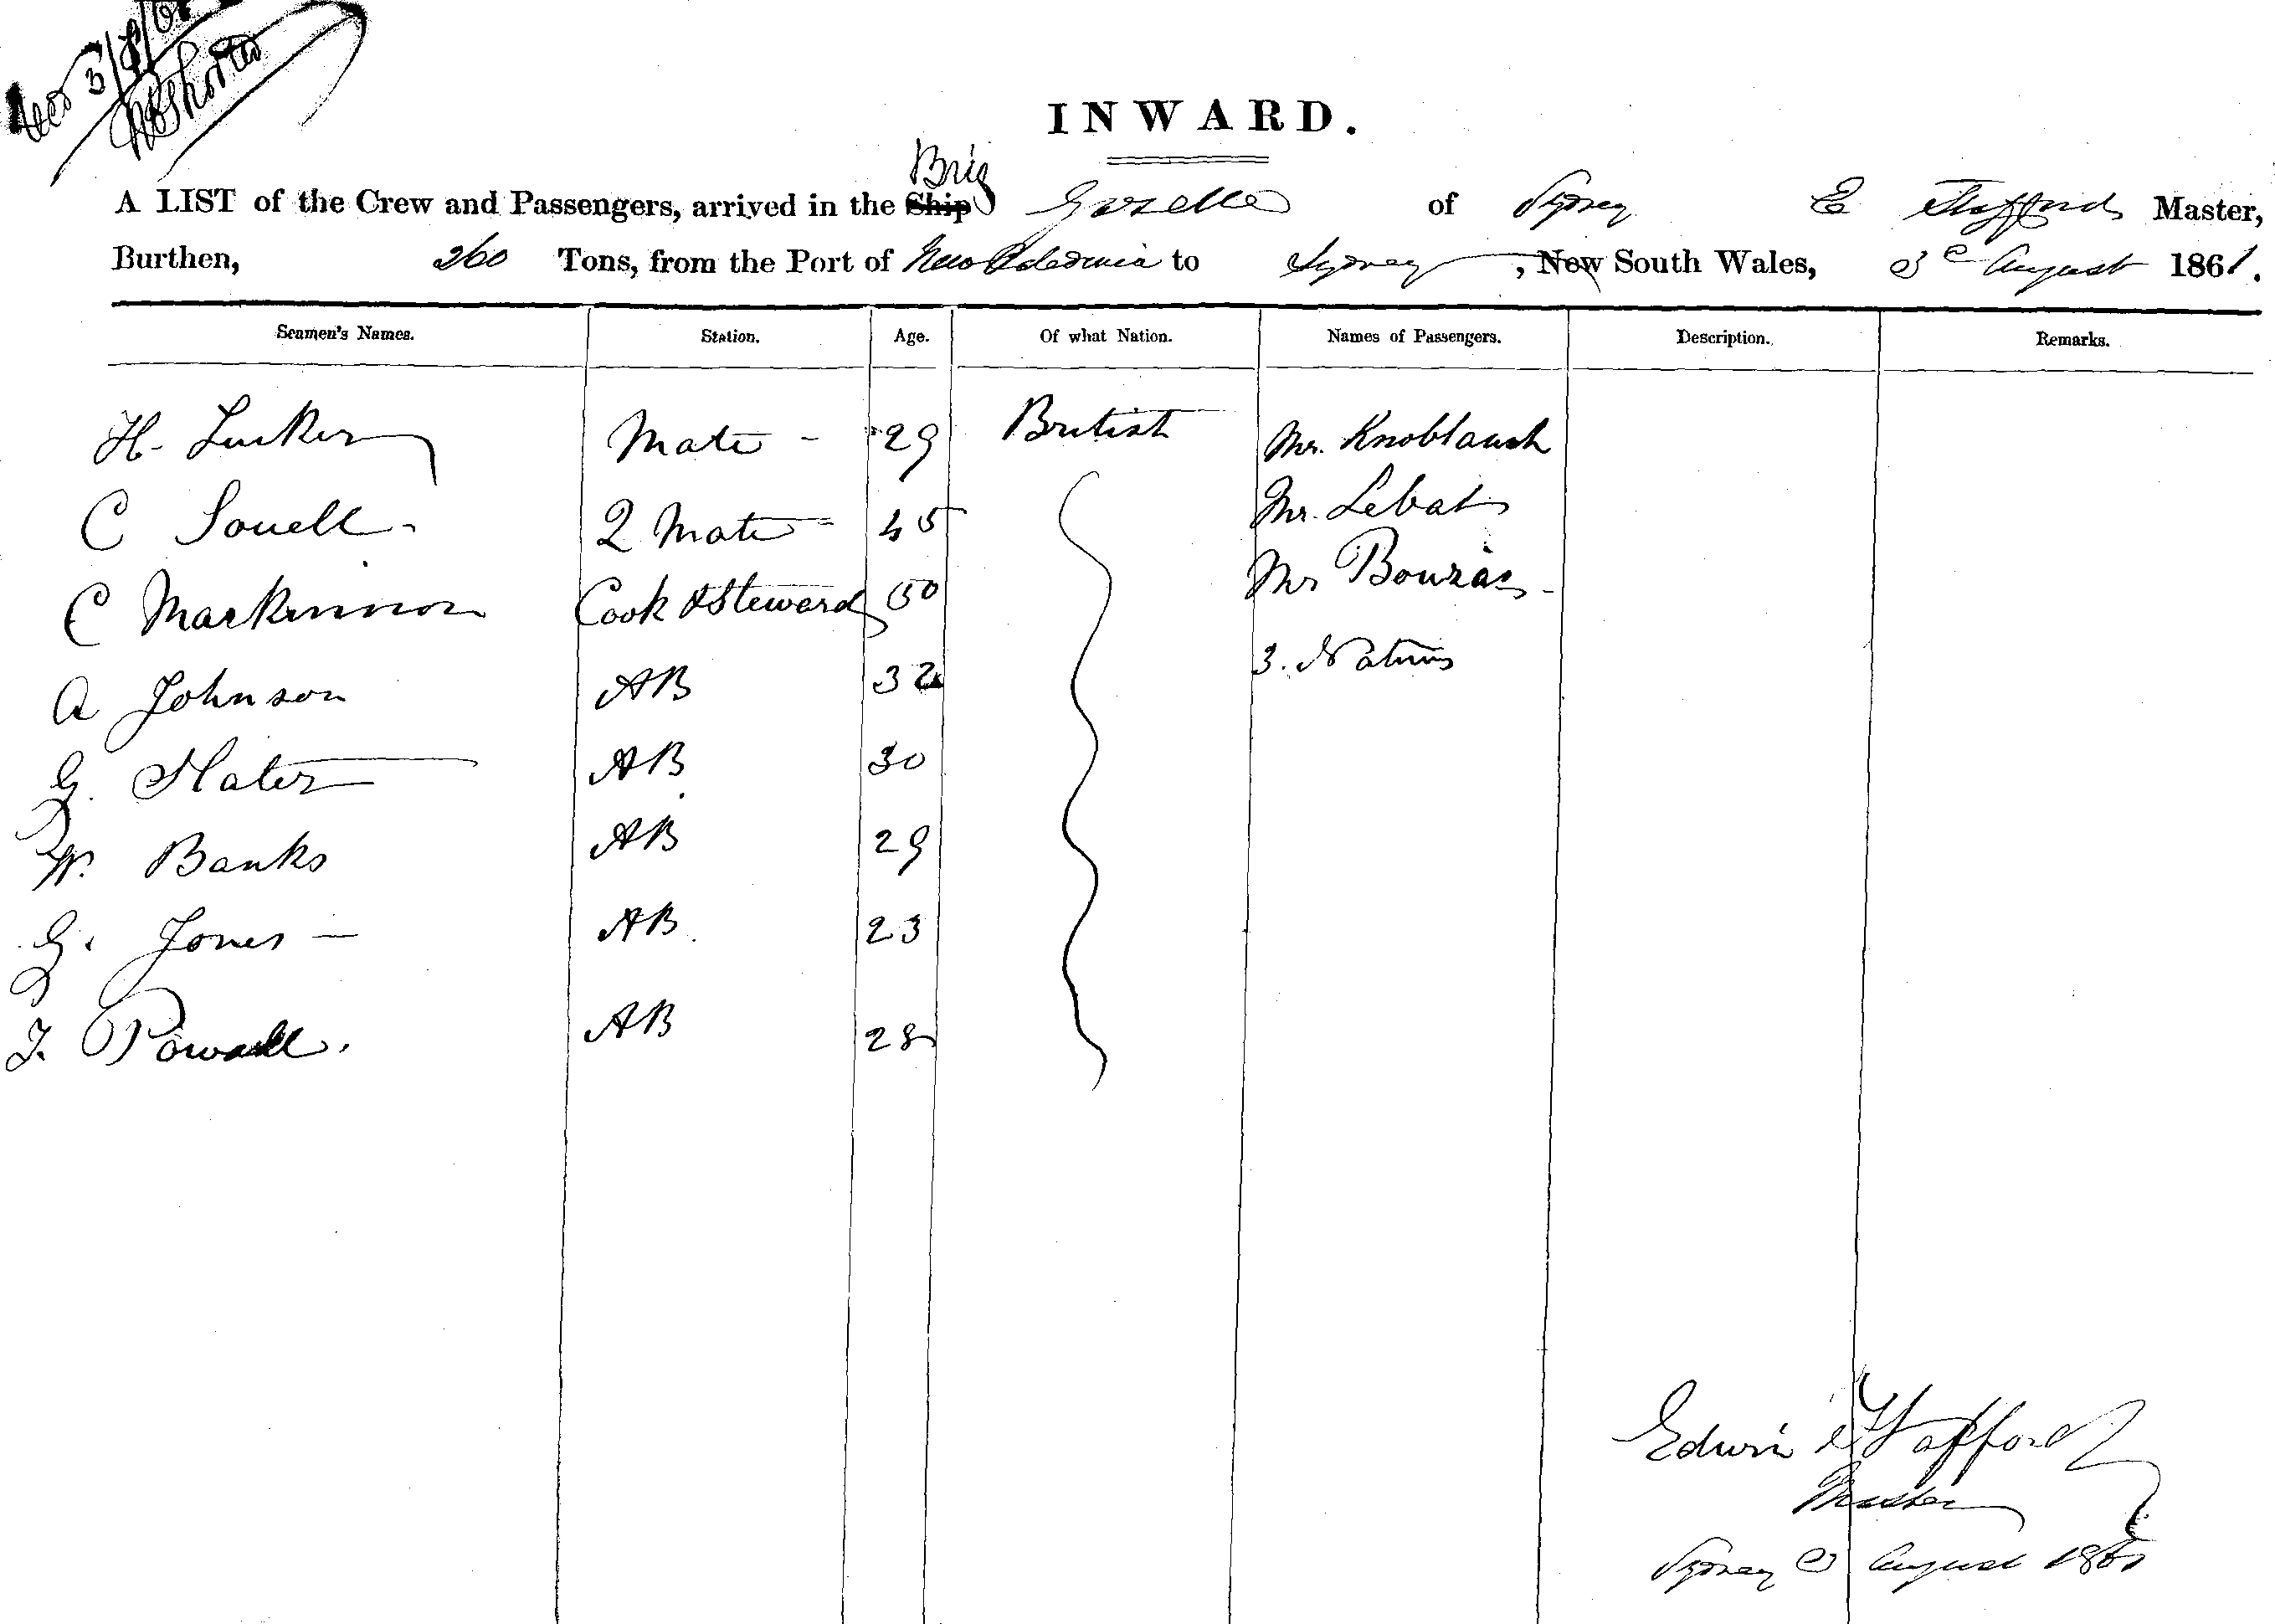 3/8/61
INWARD.
Brig
A LIST of the Crew and Passengers, arrived in the Ship Gazelle of Sydney E Stafford Master,
Burthen, 260 Tons, from the Port of New Caledonia to Sydney, New South Wales, 3 August 1861.
Seamen's Names. Station. Age. Of what Nation. Names of Passengers. Description. Remarks.
H. Tucker Mate 29 British Mr. Knoblauch
C Sewell 2 Mate 45 Mr. Lebat
C Mackinnon Cook & Steward 50 Mr Bouzas
A Johnson AB 32 3. Natives
G. Slater AB 30
W. Banks AB 29
G. Jones AB 23
T. Powell. AB 28
Edwin Stafford
Master
Sydney 3 August 1861